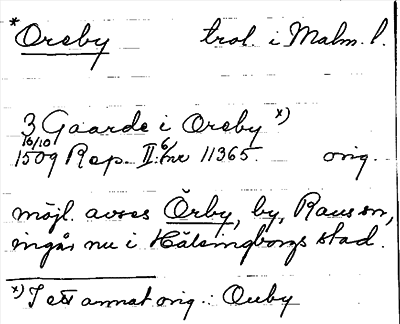 *Oreby trol. i Malm. l.
3 Gaarde i Oreby x)
16/10 1509 Rep. II:6 nr 11365. orig.
möjl. avses Örby, by, Raus sn,
ingår nu i Hälsingborgs stad.
x) I ett annat orig.: Ouby